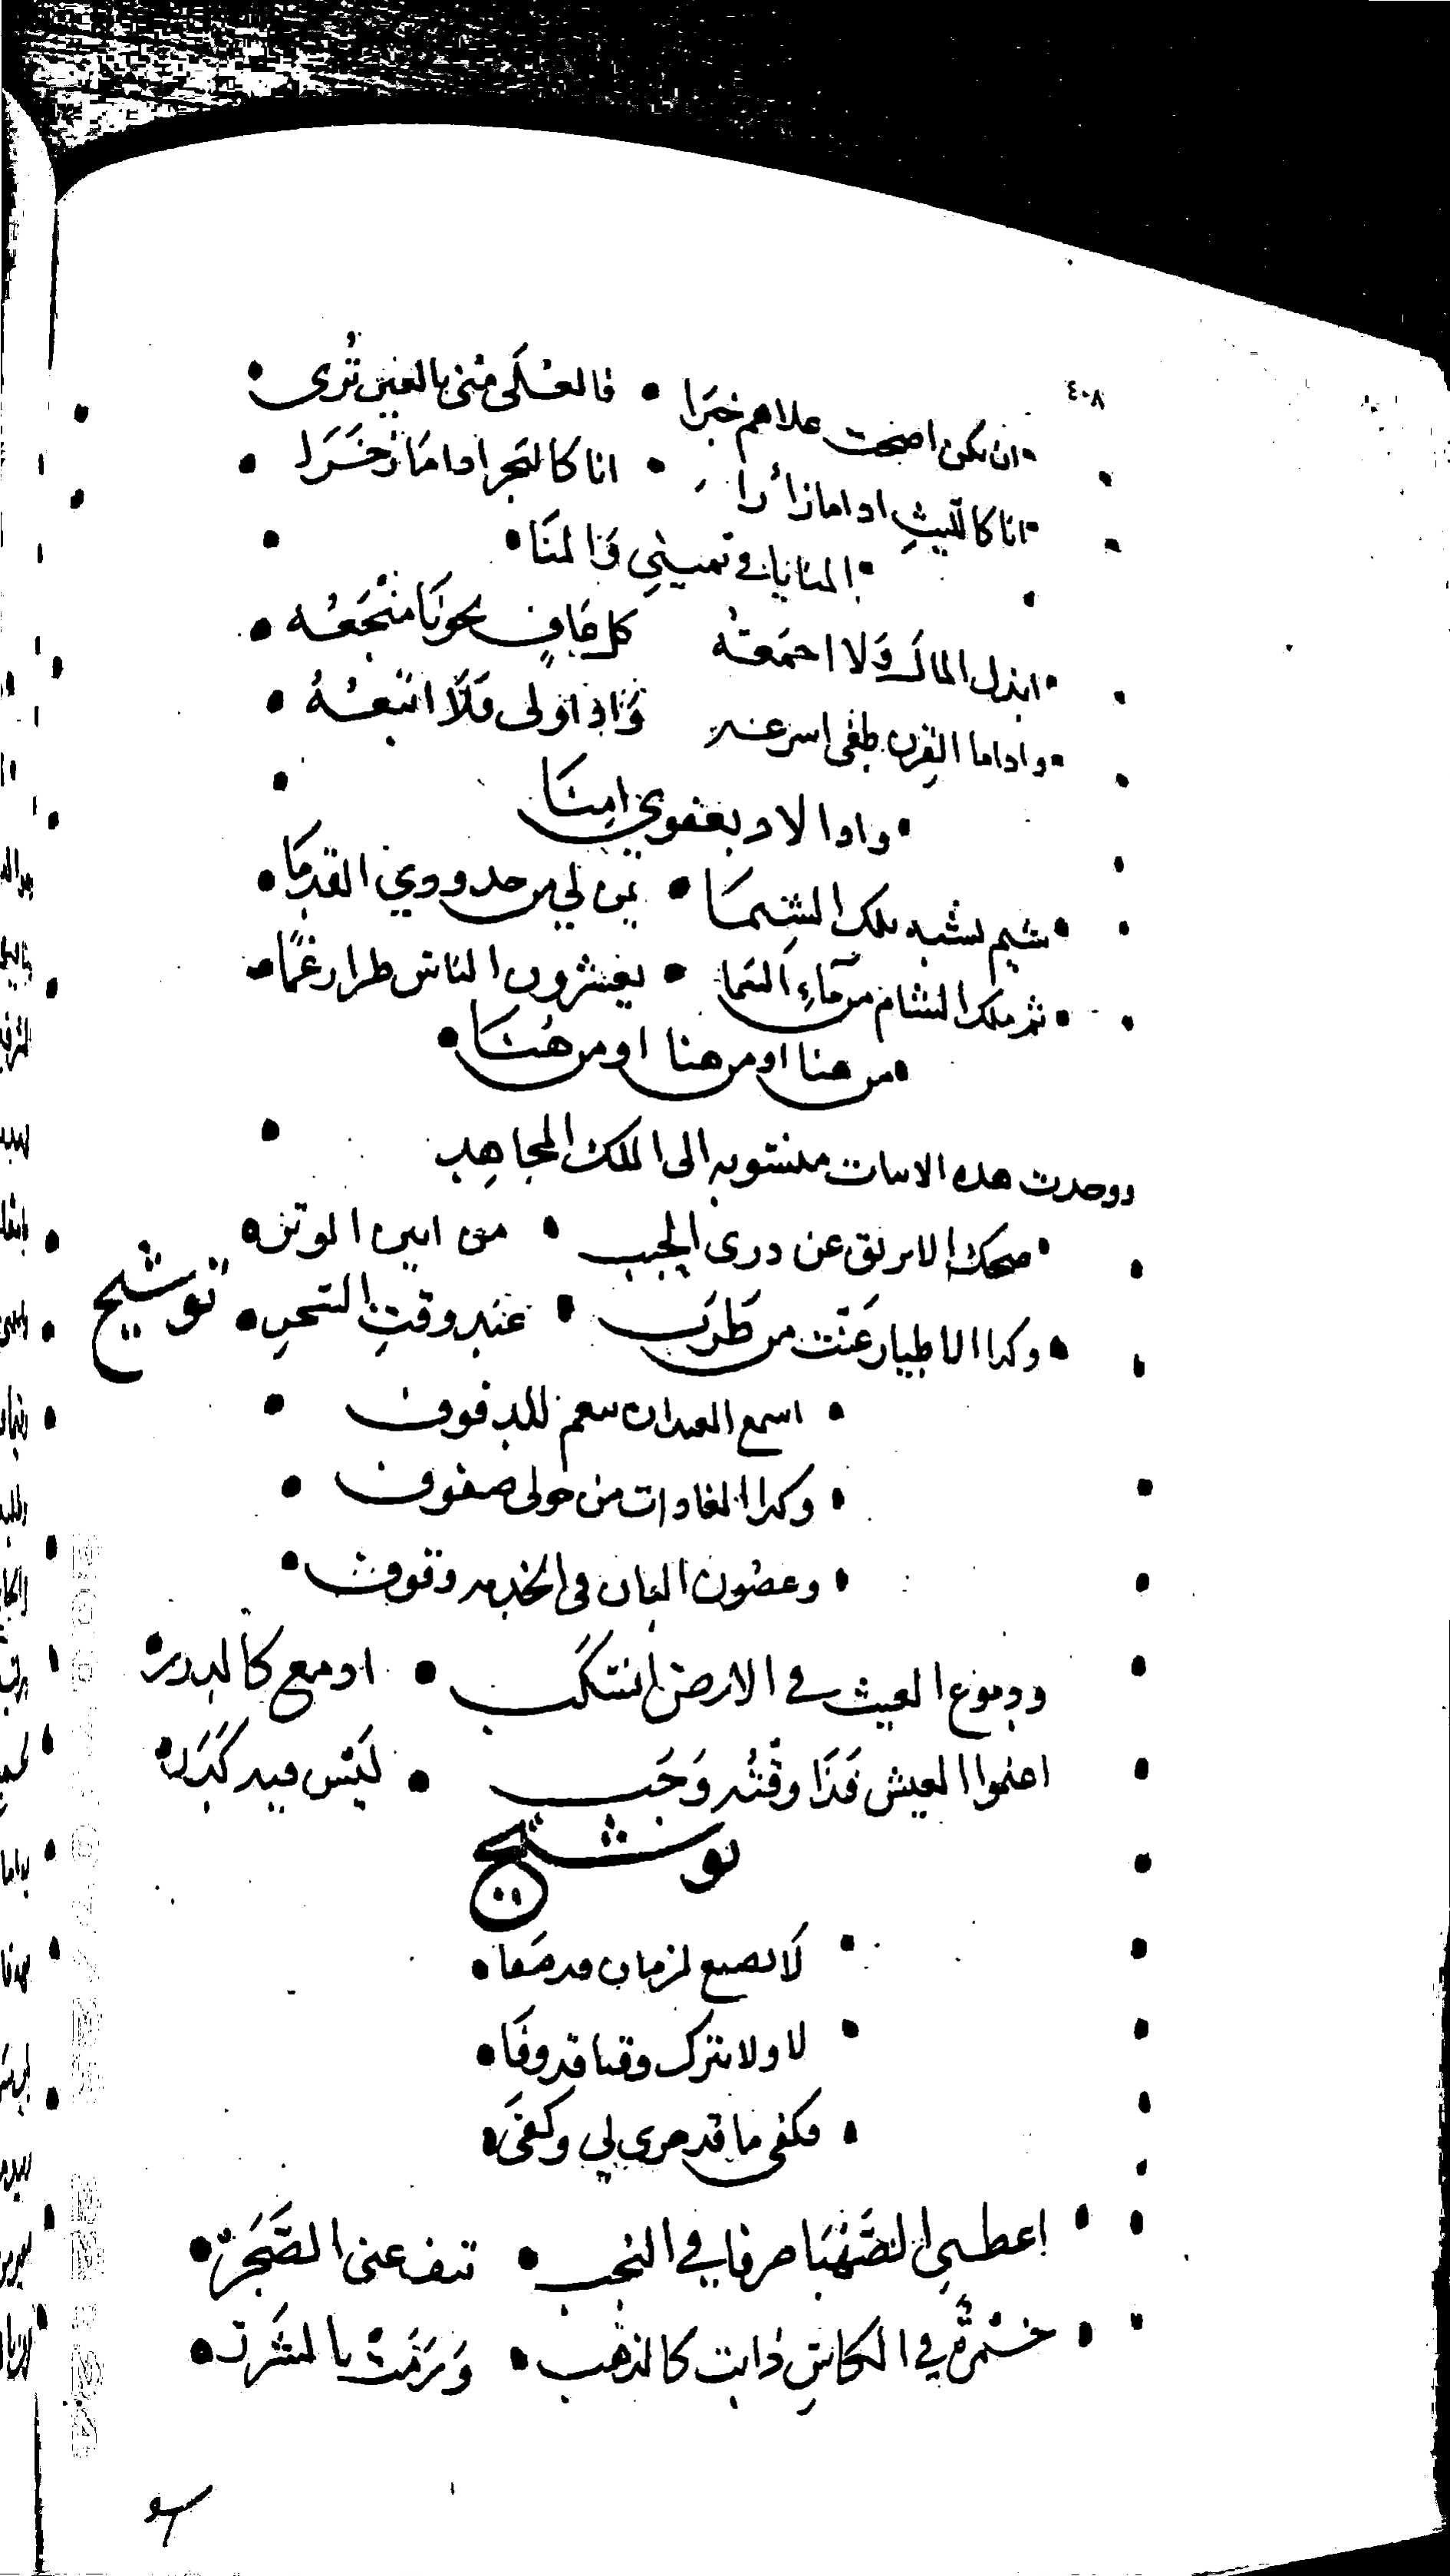 ٤٠٨
ان يكن اضحت علاهم خبرا • فالعلى منى بالعين ترى
انا كالليث اداما زأرا • انا كالبحر اداما زخرا
المنايا في يميني والمنا
ابذل المال ولا اجمعه كل جاف نحونا منتجعه
واداما القرن طغى اسرعه واذا ولى فلا اتبعه
وادا لاد بعفوي امنا
شيم تشبه تلك الشيما • لي من جدودي القدما
ثم ملك الشام من ماء السما • يعشرون الناس طرا رغما
من هنا او من هنا او من هنا
ووجدت هده الابيات منسوبه الى الملك المجاهد
ضحك الابريق عن درى الحبب • من انين الوتر
وكدا الاطيار غنت من طرب • عند وقت السحر توشيح
اسمع العيدان نعم للدفوف
وكدا الغادات من حولى صفوف
وغصون البان في الخدمه وقوف
ودموع الغيث في الارض انسكب • ادمع كالدرر
اغنموا العيش فذا وقته وجب • ليس فيه كدر
توشيح
لا تضيع لزمان قد صفا
لا ولا تترك وقتا قد وفا
فكفى ما قد جرى لي وكفى
اعطني الصهبا صرفا في النخب • تنف عنى الضجر
خمرة في الكاس ذابت كالذهب • ورمت بالشرر